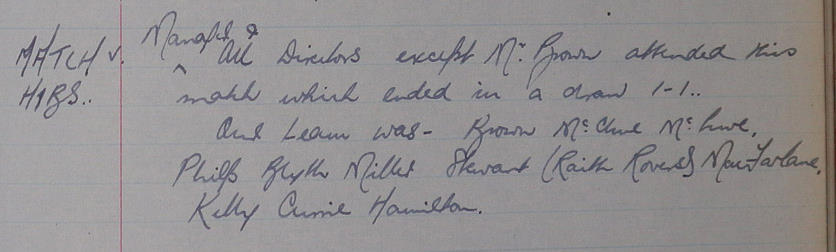 MATCH v. Manager & All Directors except Mr. Brown attended this
HIBS.. match which ended in a draw 1-1..
Our team was - Brown McClure McLure,
Philp Blyth Miller Stewart (Raith Rovers) MacFarlane,
Kelly Currie Hamilton.